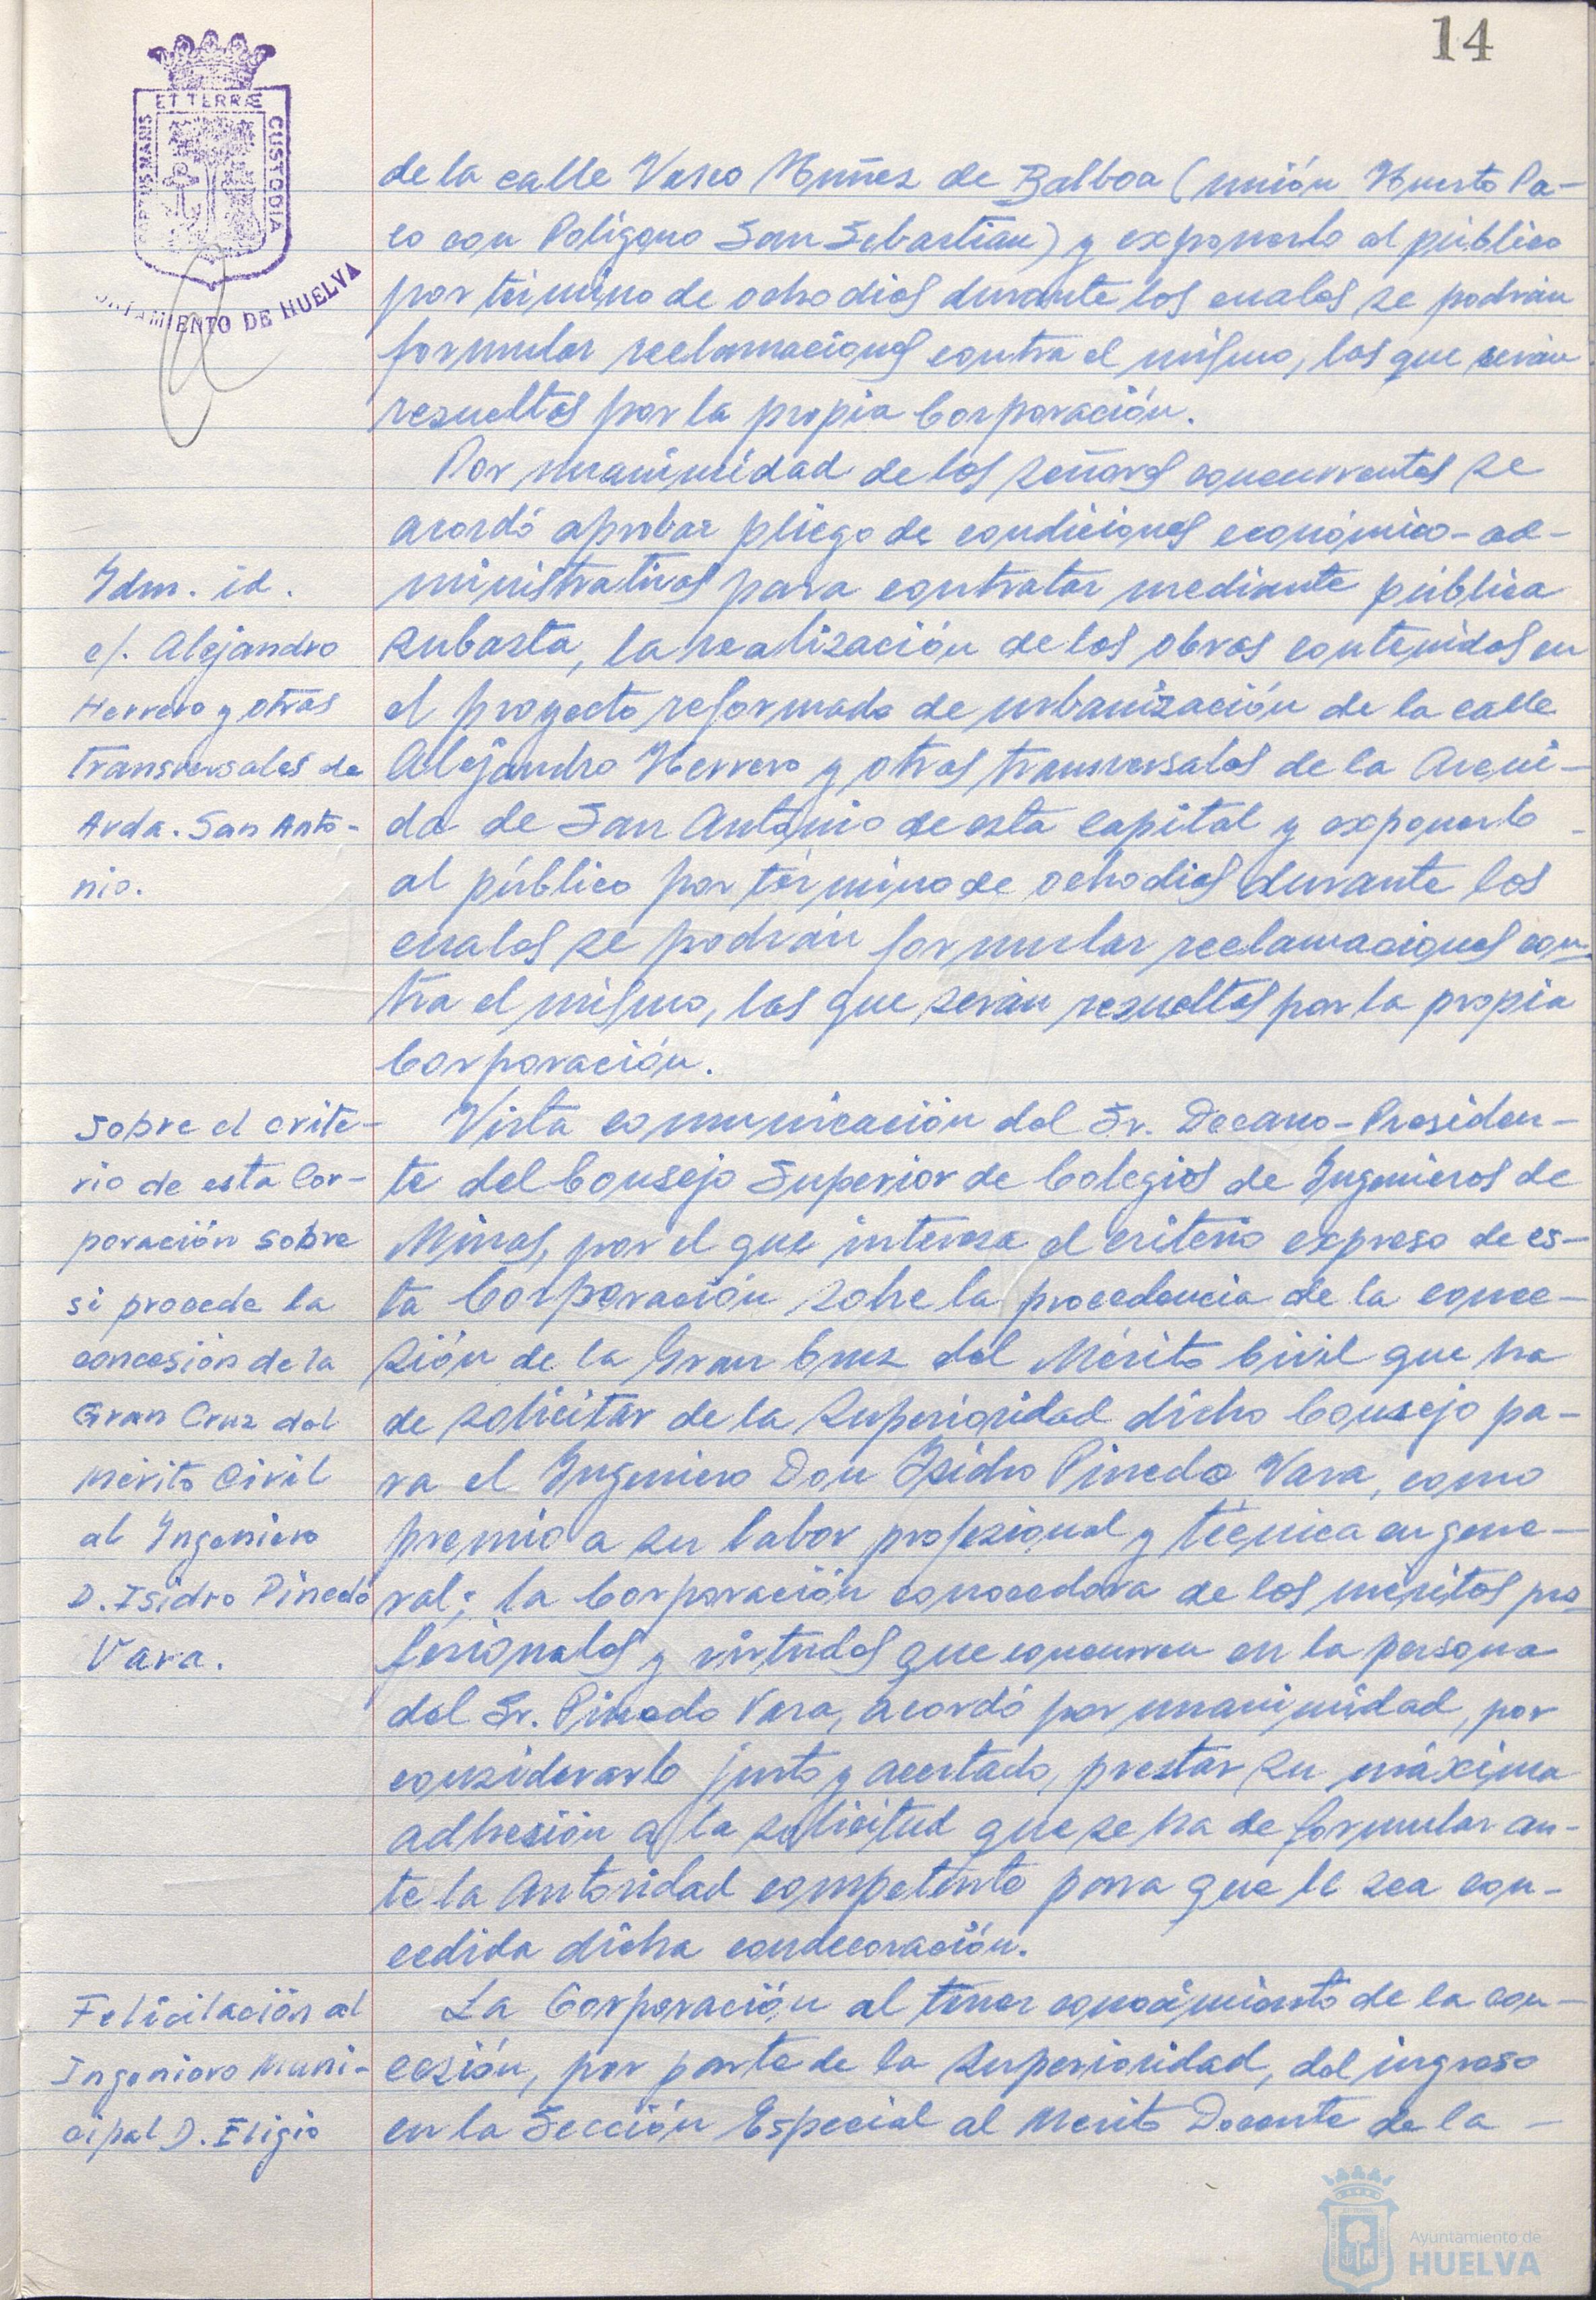 14
ET TERRÆ
PORTUS MARIS
CUSTODIA
AYUNTAMIENTO DE HUELVA
de la calle Vasco Nuñez de Balboa (unión Huerto Pa-
co con Polígono San Sebastián) y exponerlo al público
por término de ocho dias durante los cuales se podrán
formular reclamaciones contra el mismo, las que serán
resueltas por la propia Corporación.
Por unanimidad de los señores concurrentes se
acordó aprobar pliego de condiciones económico-ad-
Idm. id.
ministrativas para contratar mediante pública
c/. Alejandro
subasta, la realización de las obras contenidas en
Herrero y otras
el proyecto reformado de urbanización de la calle
transversales de
Alejandro Herrero y otras transversales de la Aveni-
Avda. San Anto-
da de San Antonio de esta capital y exponerlo
nio.
al público por término de ocho dias durante los
cuales se podrán formular reclamaciones con-
tra el mismo, las que serán resueltas por la propia
Corporación.
Sobre el crite-
Vista comunicación del Sr. Decano-Presiden-
rio de esta Cor-
te del Consejo Superior de Colegios de Ingenieros de
poración sobre
Minas, por el que interesa el criterio expreso de es-
si procede la
ta Corporación sobre la procedencia de la conce-
concesión de la
sión de la Gran Cruz del Mérito Civil que ha
Gran Cruz del
de solicitar de la Superioridad dicho Consejo pa-
Mérito Civil
ra el Ingeniero Don Isidro Pinedo Vara, como
al Ingeniero
premio a su labor profesional y técnica en gene-
D. Isidro Pinedo
ral; la Corporación conocedora de los méritos pro-
Vara.
fesionales y virtudes que concurren en la persona
del Sr. Pinedo Vara, acordó por unanimidad, por
considerarlo justo y acertado, prestar su máxima
adhesión a la solicitud que se ha de formular an-
te la Autoridad competente para que le sea con-
cedida dicha condecoración.
Felicitación al
La Corporación al tener conocimiento de la con-
Ingeniero Muni-
cesión, por parte de la Superioridad, del ingreso
cipal D. Eligio
en la Sección Especial al Merito Docente de la -
Ayuntamiento de
HUELVA